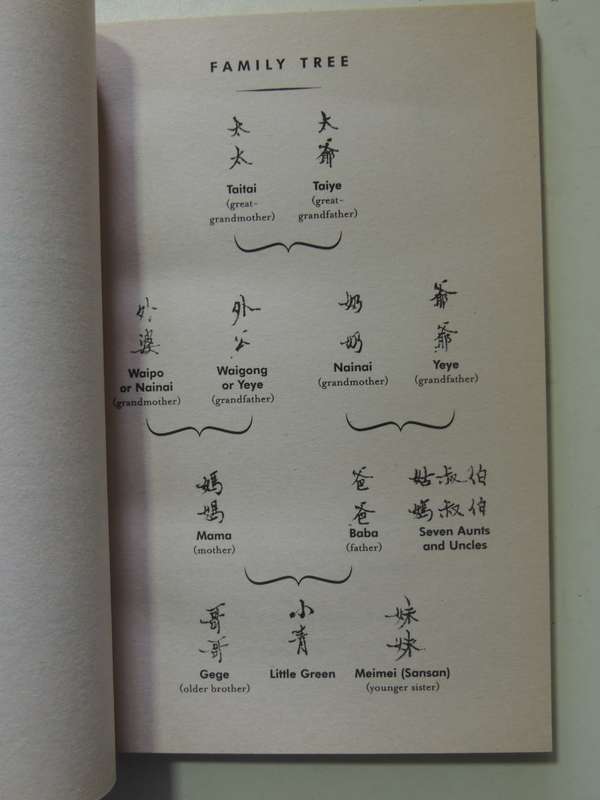 FAMILY TREE
太 太
太 爺
Taitai Taiye
(great- (great-
grandmother) grandfather)
外 外 奶 爺
婆 公 奶 爺
Waipo Waigong Nainai Yeye
or Nainai or Yeye (grandmother) (grandfather)
(grandmother) (grandfather)
媽 爸 姑叔伯
媽 爸 媽叔伯
Mama Baba Seven Aunts
(mother) (father) and Uncles
哥 小 妹
哥 青 妹
Gege Little Green Meimei (Sansan)
(older brother) (younger sister)